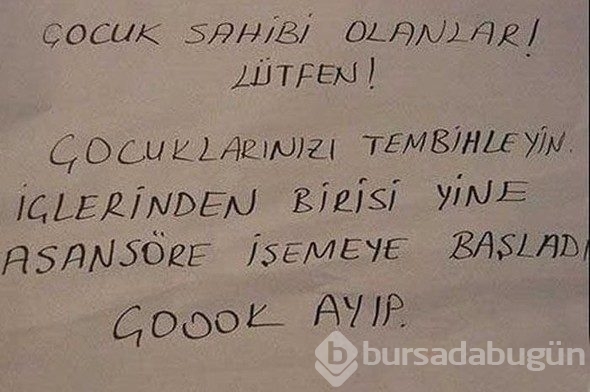 ÇOCUK SAHİBİ OLANLAR!
LÜTFEN!
ÇOCUKLARINIZI TEMBİHLEYİN.
İÇLERİNDEN BİRİSİ YİNE
ASANSÖRE İŞEMEYE BAŞLADI
ÇOOOK AYIP.
b bursadabugün